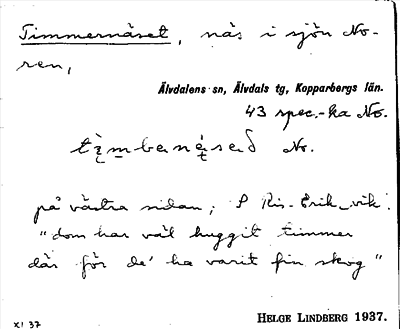 Timmernäset, näs i sjön No-
ren,
Älvdalens sn, Älvdals tg, Kopparbergs län.
43 spec.-ka No.
No.
på västra sidan; S Ris-Erik_vik:
"dom har väl huggit timmer
där för de' ha varit fin skog"
HELGE LINDBERG 1937.
XI 37